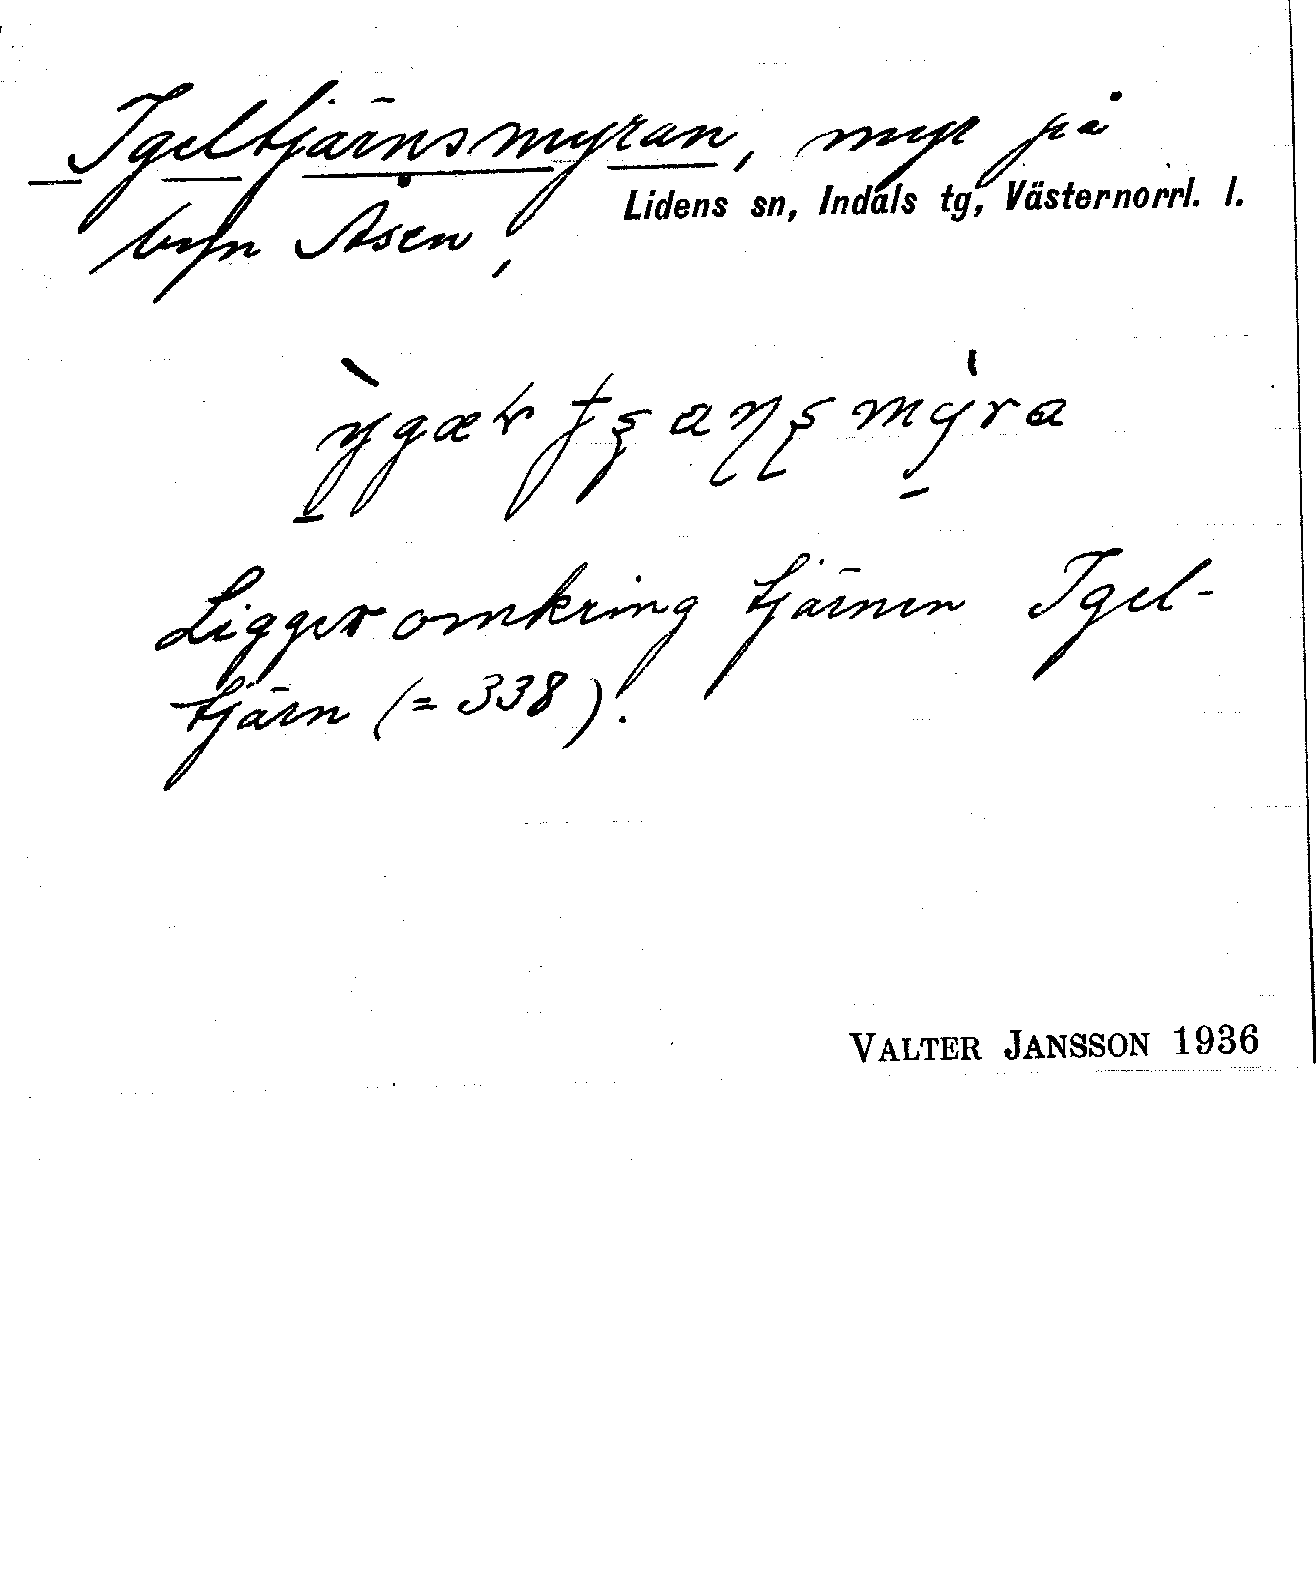 Igeltjärnsmyran, myr på
Lidens sn, Indals tg, Västernorrl. l.
byn Åsen,
Ligger omkring tjärnen Igel-
tjärn (= 338).
VALTER JANSSON 1936